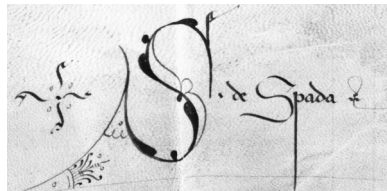 S · de Spada